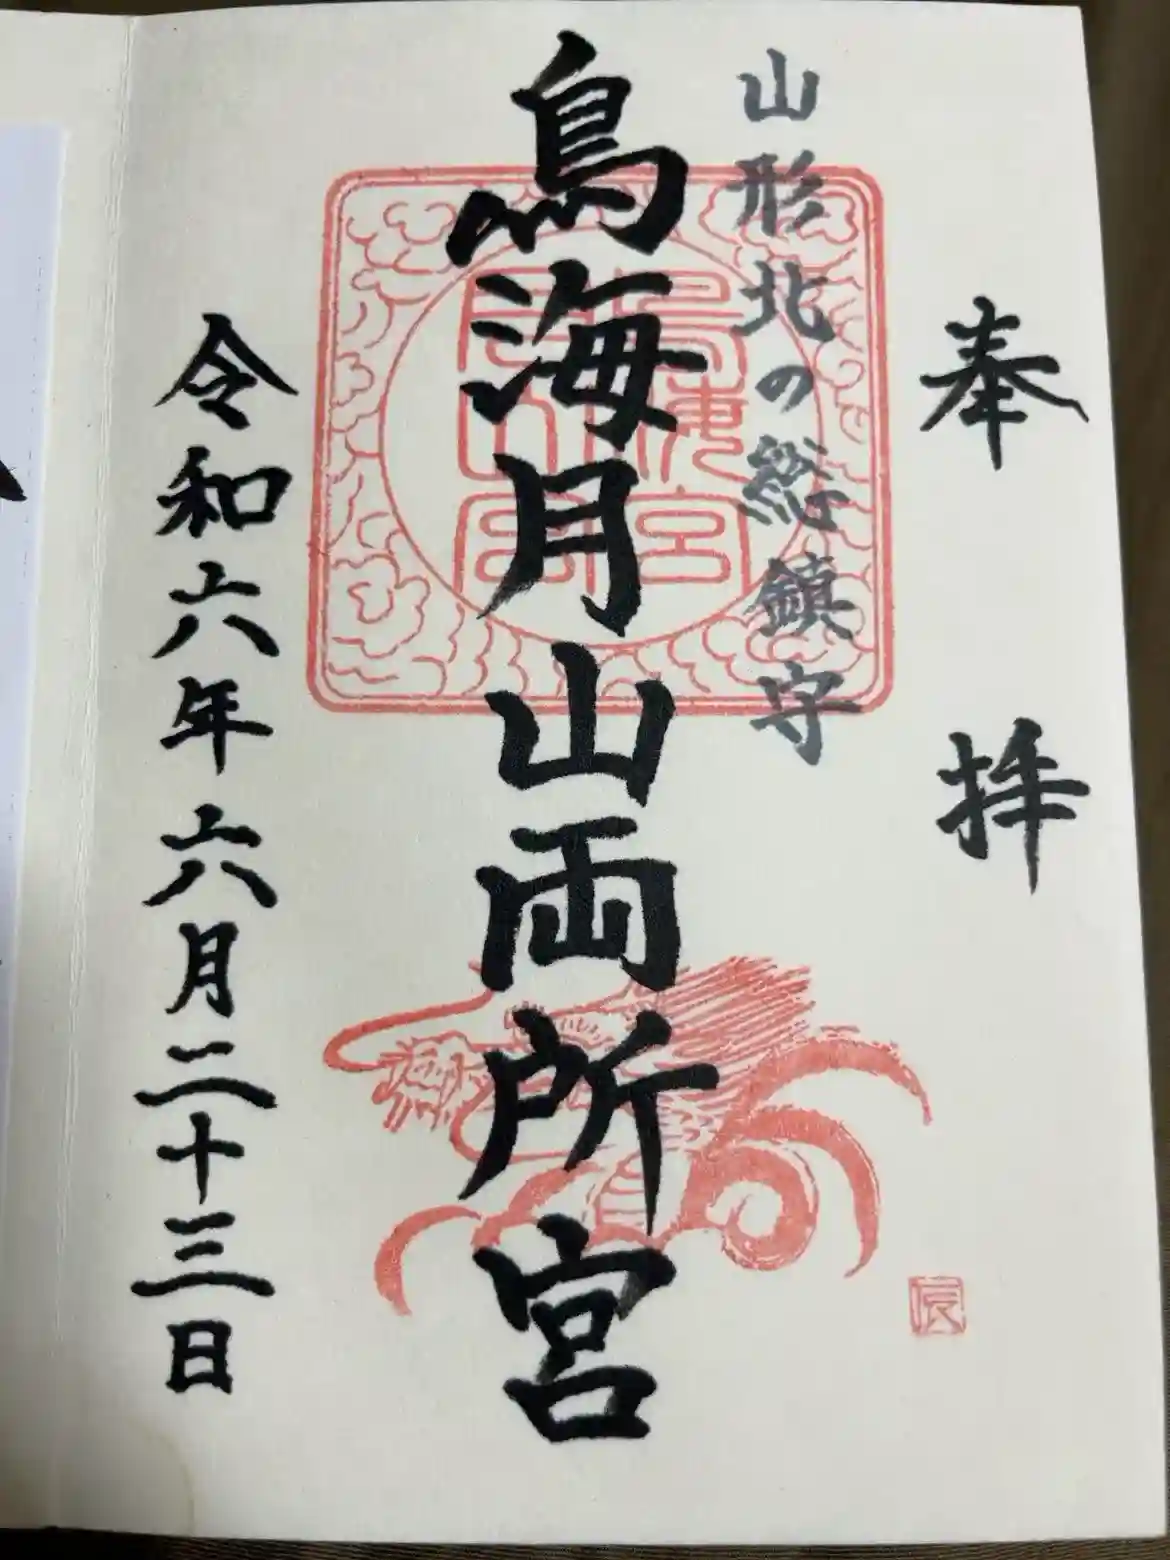 奉拝
山形北の総鎮守
鳥海月山両所宮
令和六年六月二十三日
辰